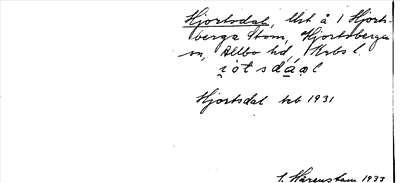 Hjortsdal, lht å 1 Hjorts-
berga Stom, Hjortsberga
sn, Allbo hd, Krbs l.
i̯ót sdá̱ạl
Hjortsdal hb 1931
S. Härenstam 1933